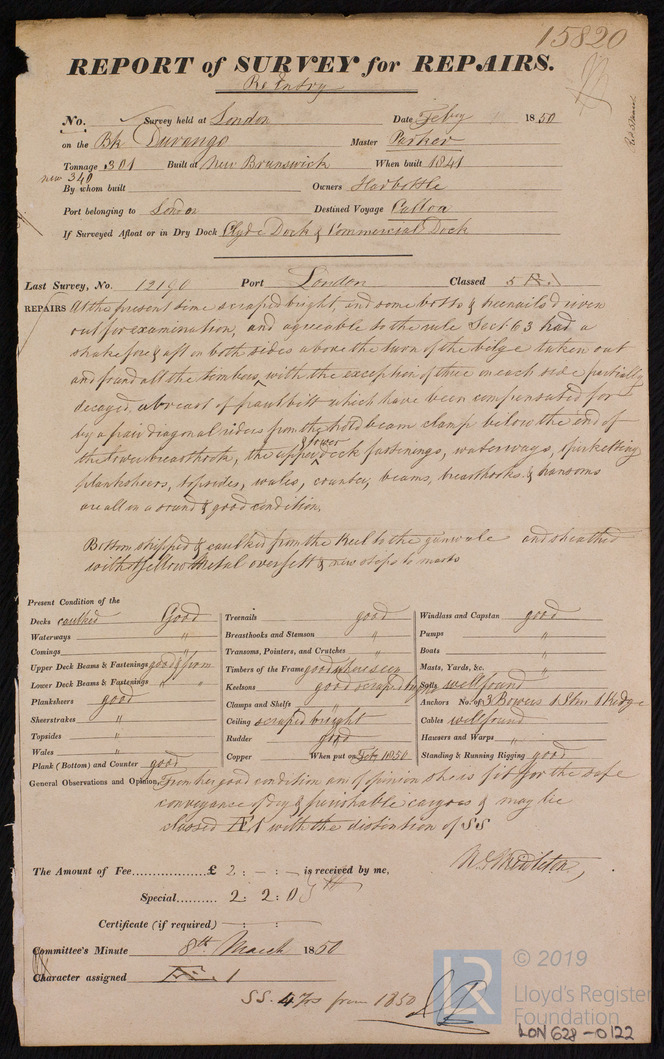 15820
REPORT of SURVEY for REPAIRS.
Re Entry
No. Survey held at London Date Feby 1850
on the Bk Durango Master Parker
Tonnage 301 Built at New Brunswick When built 1841
new 340
By whom built Owners Harbottle
Port belonging to London Destined Voyage Callao
If Surveyed Afloat or in Dry Dock Clyde Dock & Commercial Dock
Last Survey, No. 12190 Port London Classed 5 Æ 1
REPAIRS At the present time scraped bright, and some bolts & treenails driven
out for examination, and agreeable to the rule Sect 63 had a
strake fore & aft on both sides above the turn of the bilge taken out
and found all the timbers, with the exception of three on each side partially
decayed, abreast of which have been compensated for
by a pair diagonal riders from the hold beam clamp below the end of
the lower breasthook, the upper & lower deck fastenings, waterways, spirketting
planksheers, topsides, wales, counter, beams, breasthooks & transoms
are all in a sound & good condition.
Bottom stripped & caulked from the Keel to the gunwale and sheathed
with Yellow Metal over felt & new steps to masts
Present Condition of the
Decks caulked Good
Waterways "
Comings "
Upper Deck Beams & Fastenings good & firm
Lower Deck Beams & Fastenings " "
Planksheers good
Sheerstrakes "
Topsides "
Wales "
Plank (Bottom) and Counter good
Treenails good
Breasthooks and Stemson "
Transoms, Pointers, and Crutches "
Timbers of the Frame good where seen
Keelsons good scraped bright
Clamps and Shelfs "
Ceiling scraped bright
Rudder good
Copper When put on Feb 1850
Windlass and Capstan good
Pumps "
Boats "
Masts, Yards, &c. "
Sails well found
Anchors No. of 3 Bowers 1 Stm 1 Kedge
Cables well found
Hawsers and Warps "
Standing & Running Rigging good
General Observations and Opinion, From her good condition am of opinion she is fit for the safe
conveyance of dry & perishable cargoes & may be
classed Æ 1 with the distinction of SS
The Amount of Fee £ 2 : - : - is received by me,
Special 2 : 2 : 0
Certificate (if required) - : -
Committee's Minute 8th March 1850
Character assigned Æ 1
SS. 4 Yrs from 1850
© 2019
LR
Lloyd's Register
Foundation
LON 628-0122